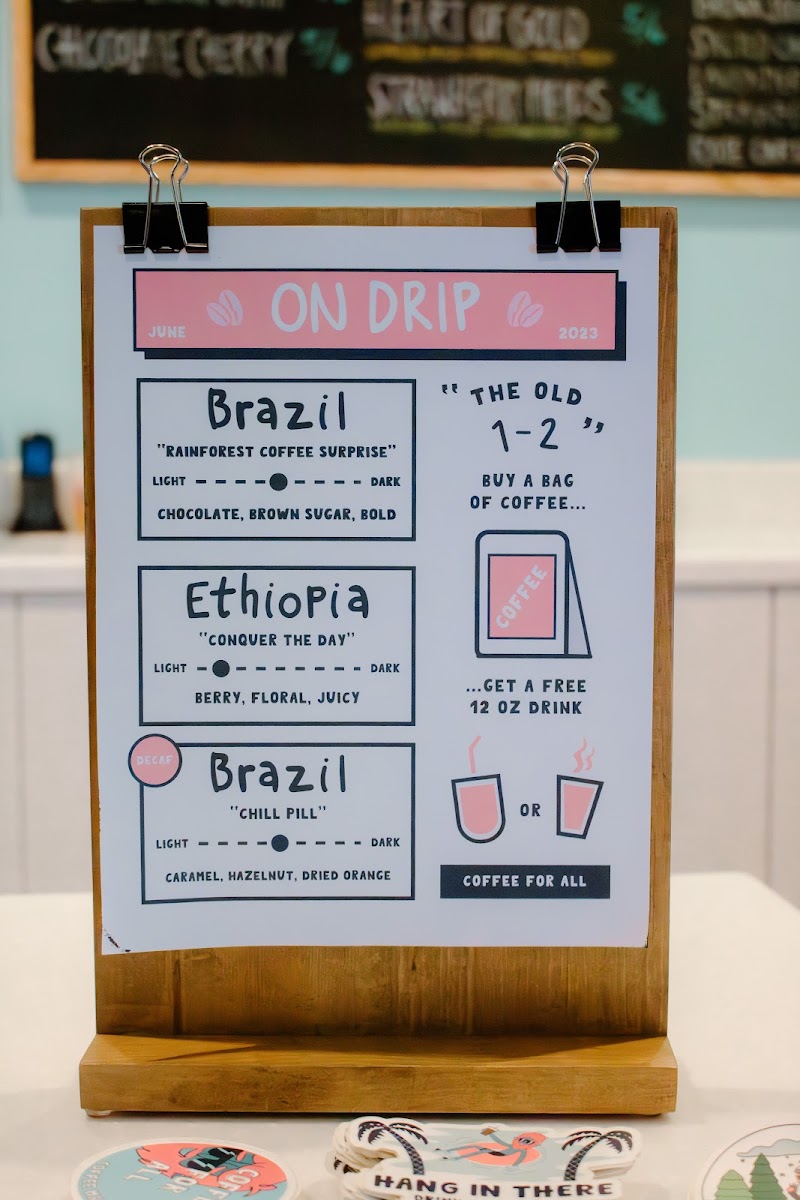 CHOCOLATE CHERRY
HEART OF GOLD
ON DRIP
JUNE
2023
Brazil
"RAINFOREST COFFEE SURPRISE"
LIGHT DARK
CHOCOLATE, BROWN SUGAR, BOLD
Ethiopia
"CONQUER THE DAY"
LIGHT DARK
BERRY, FLORAL, JUICY
DECAF
Brazil
"CHILL PILL"
LIGHT DARK
CARAMEL, HAZELNUT, DRIED ORANGE
"THE OLD
1-2"
BUY A BAG
OF COFFEE...
COFFEE
...GET A FREE
12 OZ DRINK
OR
COFFEE FOR ALL
COFFEE FOR
ALL
HANG IN THERE